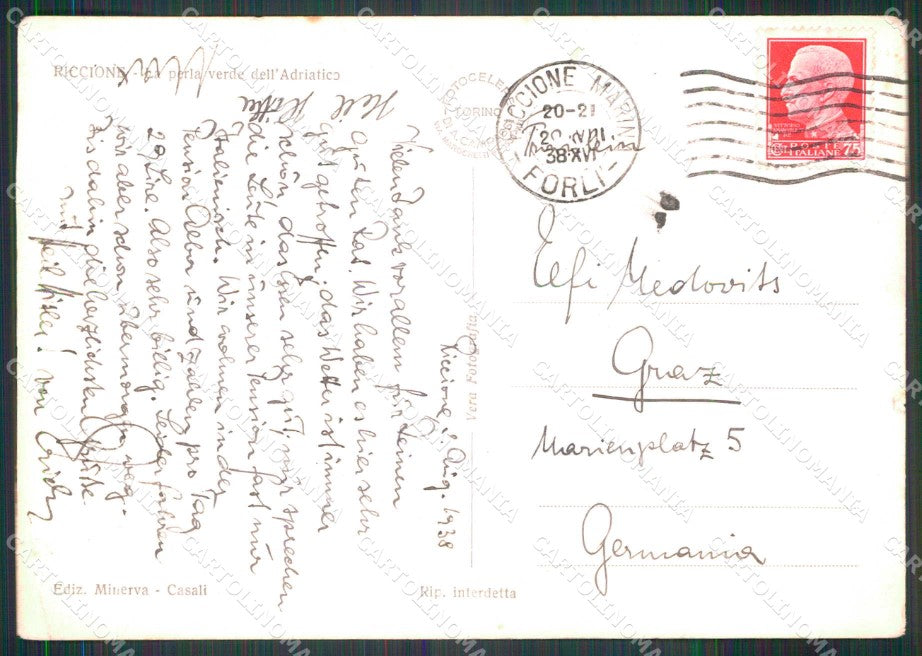 RICCIONE - La perla verde dell'Adriatico
Riccione, 2. Aug. 1938
Vielen Dank vor allem für Deinen
guten Rat. Wir haben es hier sehr
gut getroffen; das Wetter ist immer
schön, das Essen sehr gut, wir sprechen
die Leute in unserer Pension fast nur
Italienisch. Wir wohnen in der
Pension Alba und zahlen pro Tag
20 Lire. Also sehr billig. Leider fahren
wir aber schon übermorgen weg.
Bis dahin die herzlichsten Grüße
mit Heil Hitler! von Erich
Ediz. Minerva - Casali
Rip. interdetta
Vera Fotografia
FOTOCELERE
TORINO
RICCIONE MARINA
20-21
38·XVI
FORLI
POSTE
ITALIANE 75
Fräulein
Elfi Medovits
Graz
Marienplatz 5
Germania
CARTOLINOMANIA